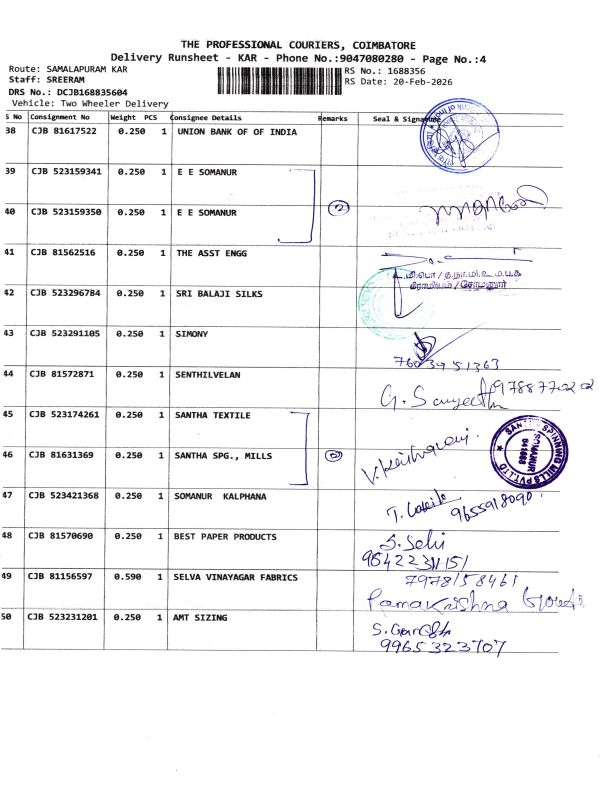 THE PROFESSIONAL COURIERS, COIMBATORE
Delivery Runsheet - KAR - Phone No.:9047080280 - Page No.:4
Route: SAMALAPURAM KAR
Staff: SREERAM
DRS No.: DCJB168835604
Vehicle: Two Wheeler Delivery
RS No.: 1688356
RS Date: 20-Feb-2026
S No Consignment No Weight PCS Consignee Details Remarks Seal & Signature
38 CJB 81617522 0.250 1 UNION BANK OF OF INDIA
39 CJB 523159341 0.250 1 E E SOMANUR
2
40 CJB 523159350 0.250 1 E E SOMANUR
41 CJB 81562516 0.250 1 THE ASST ENGG
42 CJB 523296784 0.250 1 SRI BALAJI SILKS
43 CJB 523291105 0.250 1 SIMONY
44 CJB 81572871 0.250 1 SENTHILVELAN
G. Sanjeeth
45 CJB 523174261 0.250 1 SANTHA TEXTILE
46 CJB 81631369 0.250 1 SANTHA SPG., MILLS
SANTHA SPINNING MILLS PVT. LTD
SOMANUR
641668
47 CJB 523421368 0.250 1 SOMANUR KALPHANA
9655918090
48 CJB 81570690 0.250 1 BEST PAPER PRODUCTS
S. Selvi
49 CJB 81156597 0.590 1 SELVA VINAYAGAR FABRICS
7978158461
Ramakrishna
50 CJB 523231201 0.250 1 AMT SIZING
9965323707